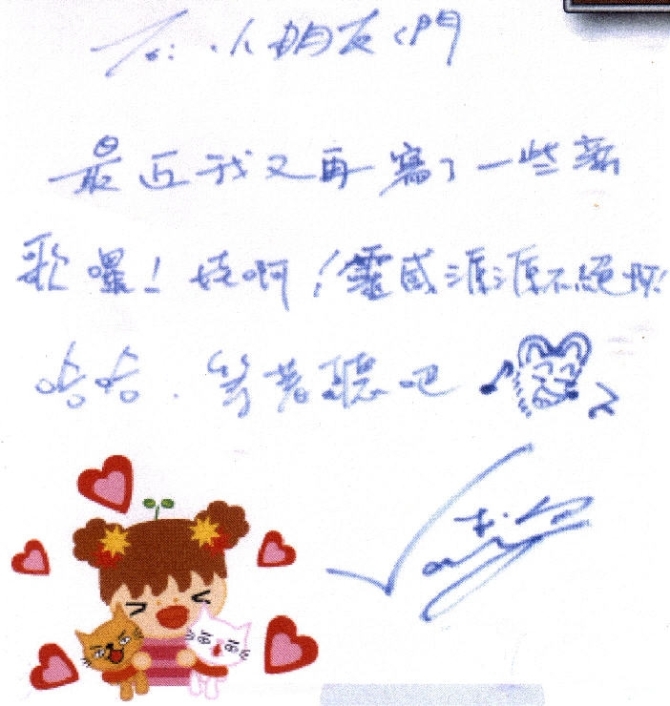 To: 小朋友們
最近我又再寫了一些新
歌囉！哇啊！靈感源源不絕啊！
哈哈．等著聽吧